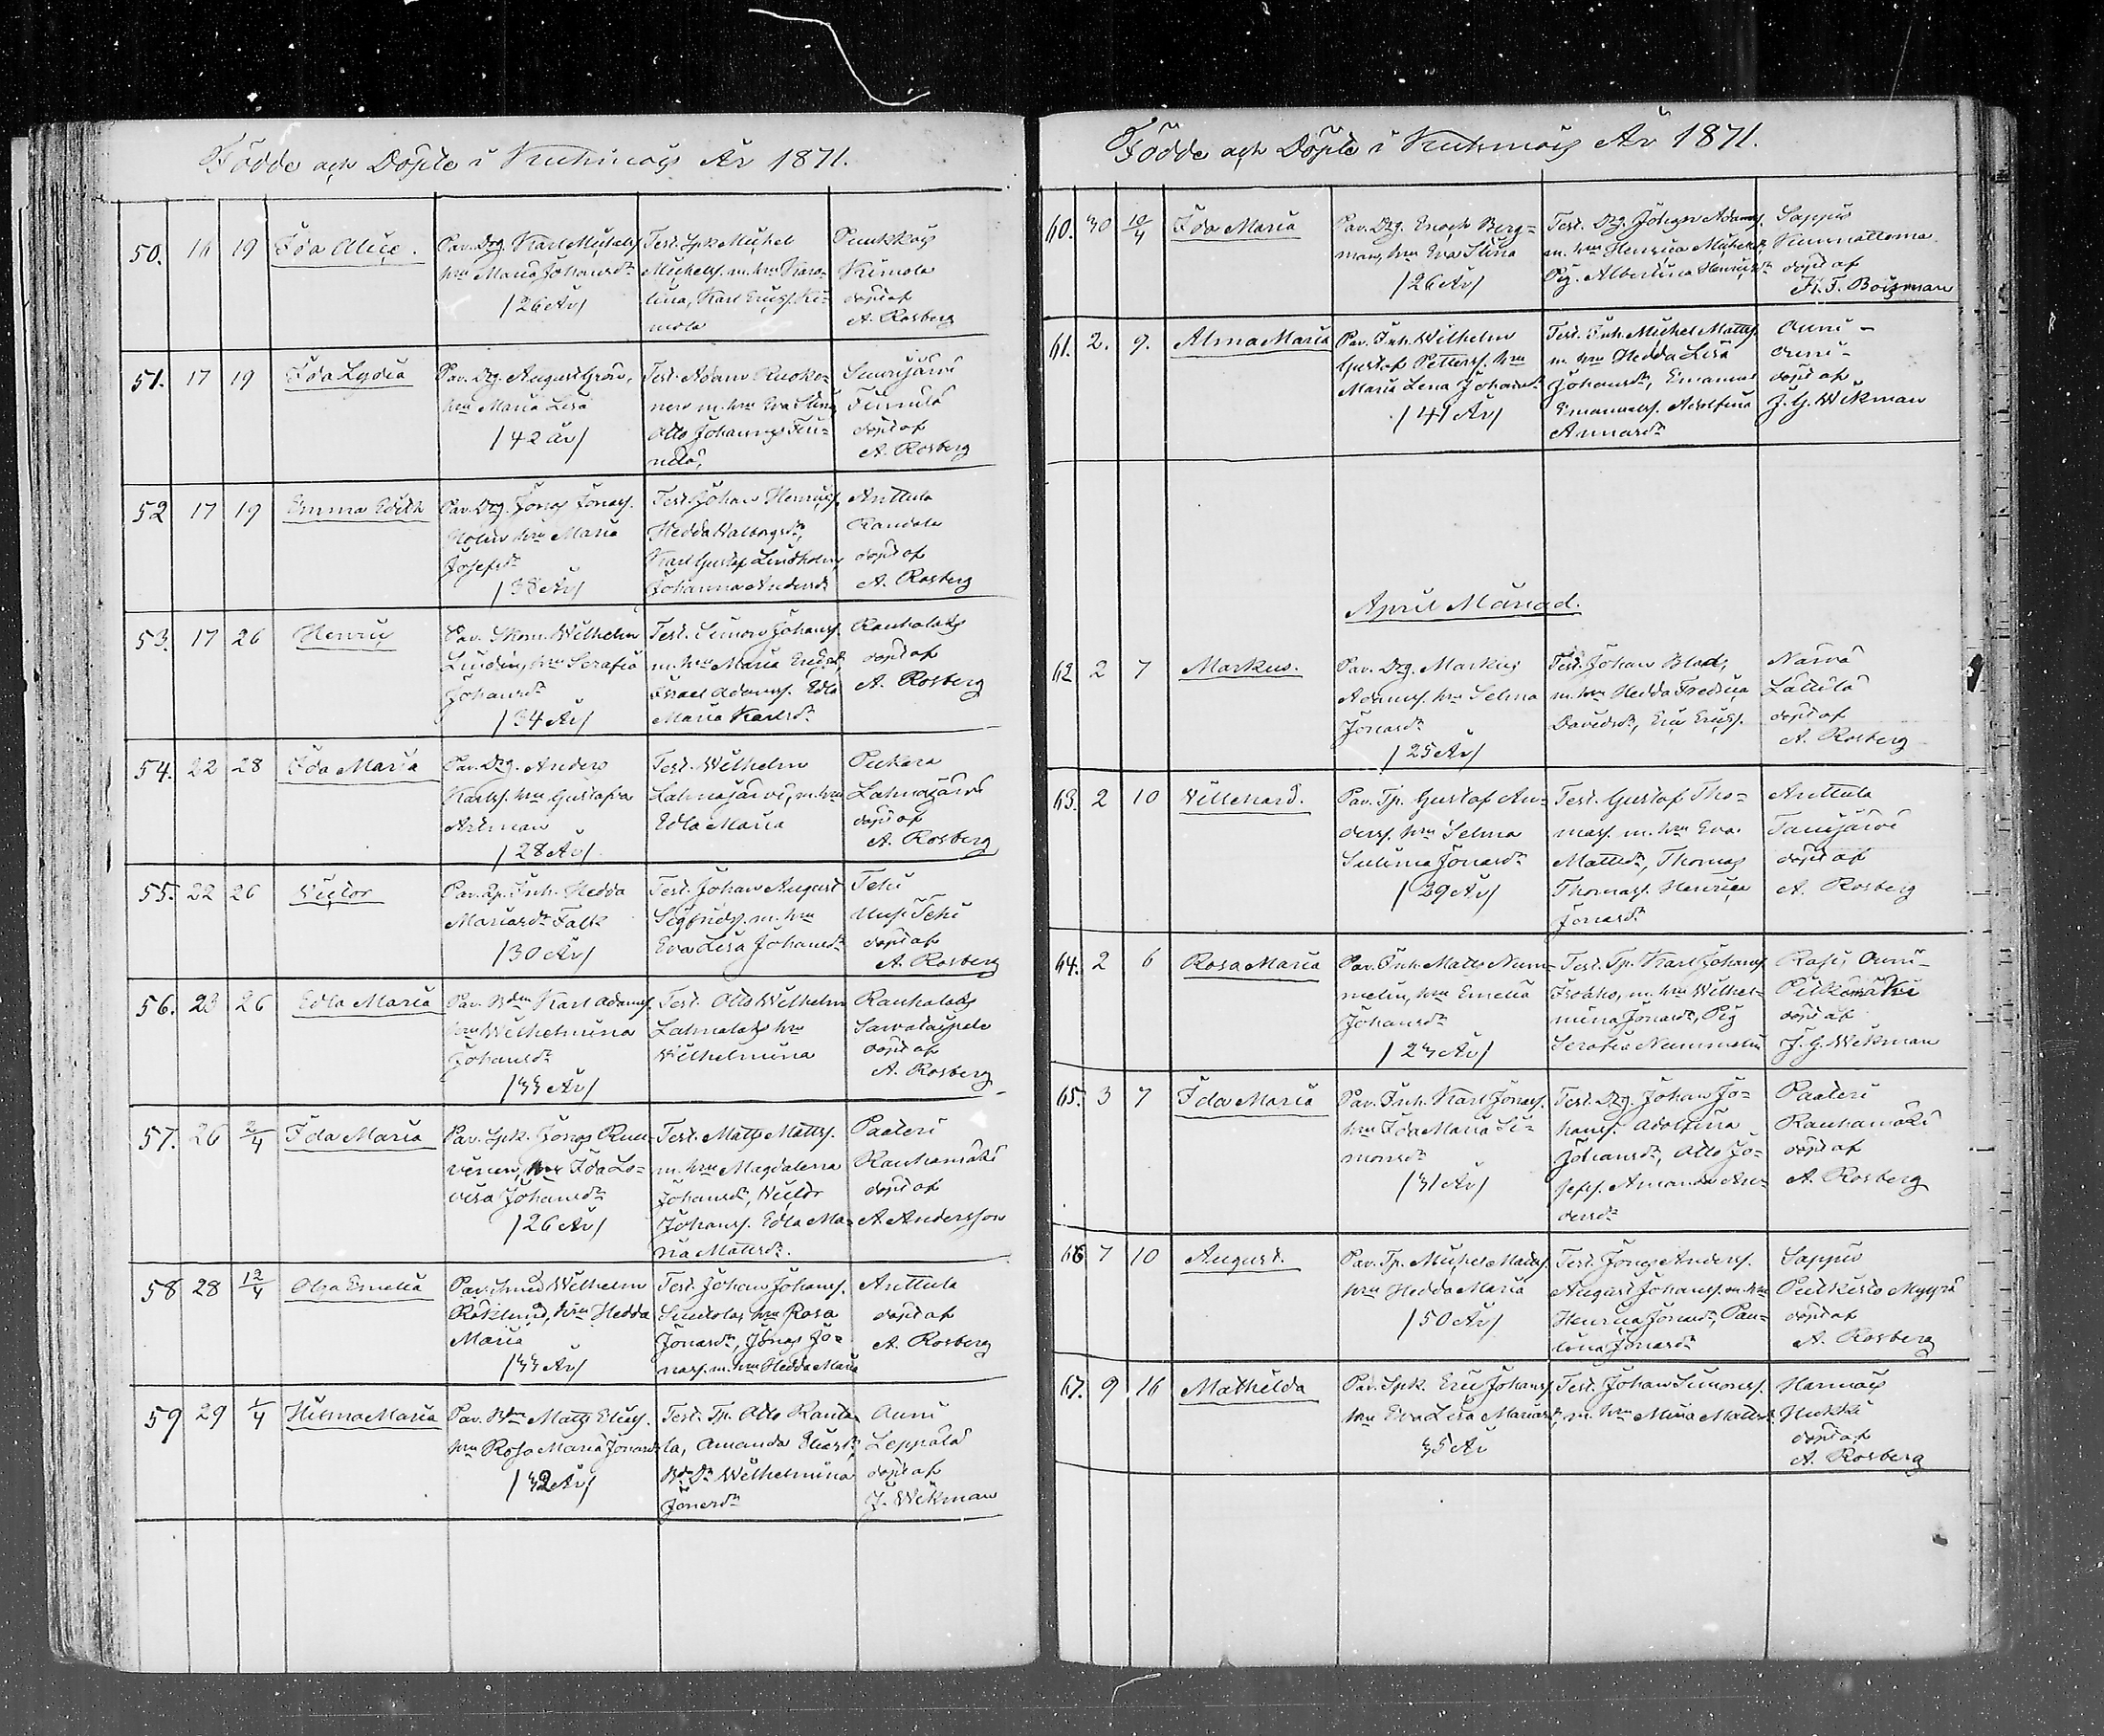 Födde och Döpte i Kuhmois År 1871.
50. 16 19 Ida Alice.
Par. Drg. Karl Michelss.
hru Maria Johansdr
/26 År/
Test. Spk Michel
Michelss. m. hru Karo-
lina, Karl Ericss. Ki-
mola
Puukkois
Kimola
döpt af
A. Rosberg
51. 17 19 Ida Lydia
Par. Drg. August Grön,
hru Maria Lisa
/42 år/
Test. Adam Ruoko-
nen m. hru Eva Stina
Otto Johanss
Sunijärvi
döpt af
A. Rosberg
52 17 19 Emma Edith
Par. Drg. Jonas Jonass.
Holm hru Maria
Josefsdr
/38 År/
Test. Johan Henricss,
Hedda Walborgsdr,
Karl Gustaf Lindholm,
Johanna Andersdr
Anttula
Randala
döpt af
A. Rosberg
53. 17 26 Henric
Par. Skom. Wilhelm
Lindin, hru Serafia
Johansdr
/34 År/
Test. Simon Johanss.
m. hru Maria Ericsdr,
Israel Adamss. Edla
Maria Karlsdr
Rauhalaks
döpt af
A. Rosberg
54. 22 28 Ida Maria
Par. Drg. Anders
Karlss. hru Gustafva
Artman
/28 År/
Test. Wilhelm
Lahnajärvi, m. hru
Edla Maria
Pukara
Lahnajärvi
döpt af
A. Rosberg
55. 22 26 Victor
Par. Inh. Hedda
Mariasdr Falk
/30 År/
Test. Johan August
Sigfridss. m. hru
Eva Lisa Johansdr
Tehi
Uusi Tehi
döpt af
A. Rosberg
56. 23 26 Edla Maria
Par. Bdn Karl Adamss.
hru Wilhelmina
Johansdr
/33 År/
Test. Otto Wilhelm
Lahnalaks hru
Wilhelmina
Rauhalaks
döpt af
A. Rosberg
57. 26 2/4 Ida Maria
Par. Spk. Jonas Ruu-
vinen, hru Ida Lo-
visa Johansdr
/26 År/
Test. Matts Mattss.
m. hru Magdalena
Johansdr, Victor
Johanss. Edla Ma-
ria Mattsdr.
Paateri
Rauhamäki
döpt af
A. Andersson
58 28 12/4 Olga Emelia
Par. Smed Wilhelm
Röklund, hru Hedda
Maria
/33 År/
Test. Johan Johanss.
hru Rosa
Jonasdr, Jonas Jo-
nass. m. hru Hedda Maria
Anttula
döpt af
A. Rosberg
59 29 1/4 Hilma Maria
Par. Bdn Matts Eliass.
hru Rosa Maria Jonasdr
/32 År/
Test. Tp. Otto Ranta-
la, Amanda Eliasdr,
Wilhelmina
Jonasdr
Auni
Leppälä
döpt af
J. Wikman
Födde och Döpte i Kuhmois År 1871.
60. 30 10/4 Ida Maria
Par. Drg. Enoch Berg-
man, hru Eva Stina
/26 År/
Test. Drg. Johan Adamss.
m. hru Henrica Michelsdr,
Pig. Albertina Henricsdr
Sappu
döpt af
A. F. Boisman
61. 2. 9. Alma Maria
Par. Inh. Wilhelm
Gustaf Petterss. hru
Maria Lena Johansdr
/41 År/
Test. Inh. Michel Mattss.
m. hru Hedda Lisa
Johansdr, Emanuel
Emanuelss. Adolfina
Annasdr
Auni-
Auni-
döpt af
J. G. Wikman
April Månad.
62 2 7 Markus.
Par. Drg. Markus
Adamss. hru Selma
Jonasdr
/25 År/
Test. Johan Blad,
m. hru Hedda Fredrica
Davidsdr, Eric Ericss.
Narva
Lättilä
döpt af
A. Rosberg
63. 2 10 Willehard.
Par. Tp. Gustaf An-
derss. hru Selma
Sulima Jonasdr
/29 År/
Test. Gustaf Tho-
mass. m. hru Eva
Mattsdr, Thomas
Thomass. Henrica
Jonasdr
Anttula
döpt af
A. Rosberg
64. 2 6 Rosa Maria
Par. Inh. Matts Num-
melin, hru Emelia
Johansdr
/23 År/
Test. Tp. Karl Johanss
Isoaho, m. hru Wilhel-
mina Jonasdr, Pig
Serafia Nummelin
Auni-
Pitkämäki
döpt af
J. G. Wikman
65. 3 7 Ida Maria
Par. Inh. Karl Jonass.
hru Ida Maria Si-
monsdr
/31 År/
Test. Drg. Johan Jo-
hanss. Adolfina
Johansdr, Otto Jo-
sefss. Amanda An-
dersdr
Paateri
Rauhamäki
döpt af
A. Rosberg
66 7 10 August.
Par. Tp. Michel Mattss.
hru Hedda Maria
/50 År/
Test. Jonas Anderss.
August Johanss. m. hru
Henrica Jonasdr, Pau-
lina Jonasdr
Sappu
döpt af
A. Rosberg
67. 9 16 Mathilda
Par. Spk. Eric Johanss.
hru Eva Lisa Mariasdr
35 År
Test. Johan Simonss.
m. hru Mina Mattsdr
Harmois
Hukki
döpt af
A. Rosberg